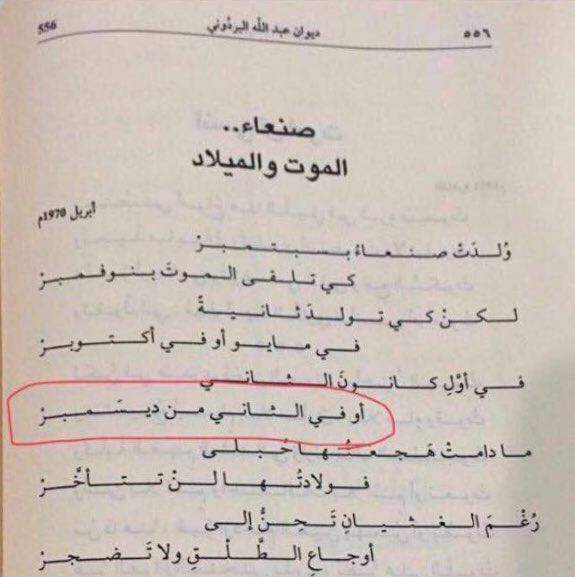 ٥٥٦ ديوان عبد الله البردّوني 556
صنعاء..
الموت والميلاد
أبريل 1970م
وُلدَتْ صنعاءُ بسبتمبرْ
كي تلقى الموتَ بنوفمبرْ
لكنْ كي تولدَ ثانيةً
في مايو أو في أكتوبرْ
في أوّلِ كانونَ الثاني
أو في الثاني من ديسَمبرْ
ما دامتْ هَجعتُها حُبلى
فولادتُها لنْ تتأخَّرْ
رُغْمَ الغثيانِ تَحِنُّ إلى
أوجاعِ الطَّلْقِ ولا تَضجرْ